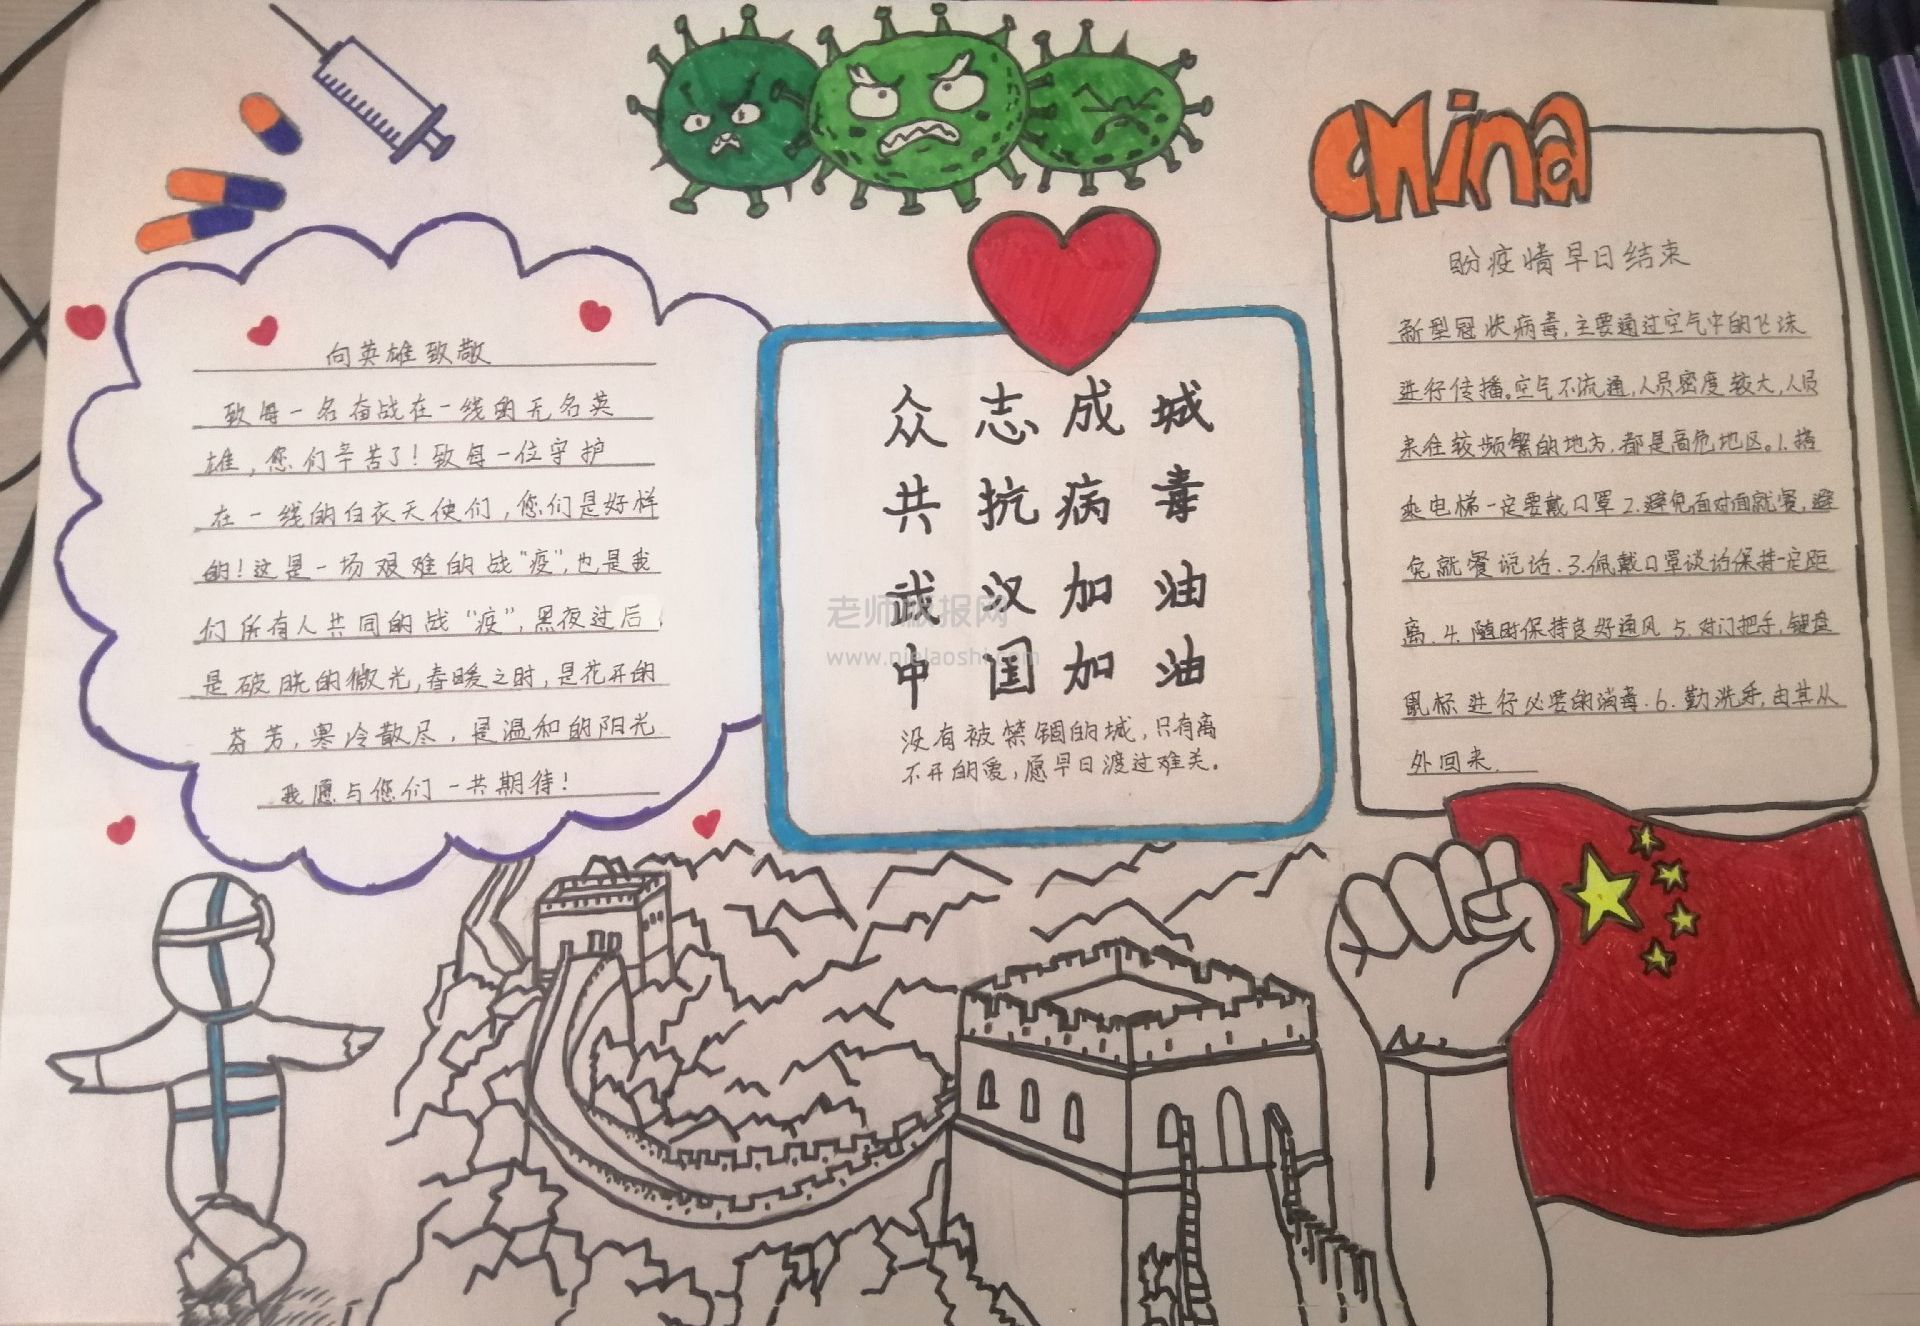 China
向英雄致敬
致每一名奋战在一线的无名英
雄，您们辛苦了！致每一位守护
在一线的白衣天使们，您们是好样
的！这是一场艰难的战“疫”，也是我
们所有人共同的战“疫”，黑夜过后，
是破晓的微光，春暖之时，是花开的
芬芳，寒冷散尽，是温和的阳光
我愿与您们一共期待！
众志成城
共抗病毒
武汉加油
中国加油
没有被禁锢的城，只有离
不开的爱，愿早日渡过难关。
老师板报网
www.nielaoshi.com
盼疫情早日结束
新型冠状病毒，主要通过空气中的飞沫
进行传播。空气不流通，人员密度较大，人员
来往较频繁的地方，都是高危地区。1.搭
乘电梯一定要戴口罩2.避免面对面就餐，避
免就餐说话.3.佩戴口罩谈话保持一定距
离.4.随时保持良好通风5.对门把手，键盘
鼠标进行必要的消毒.6.勤洗手，由其从
外回来.